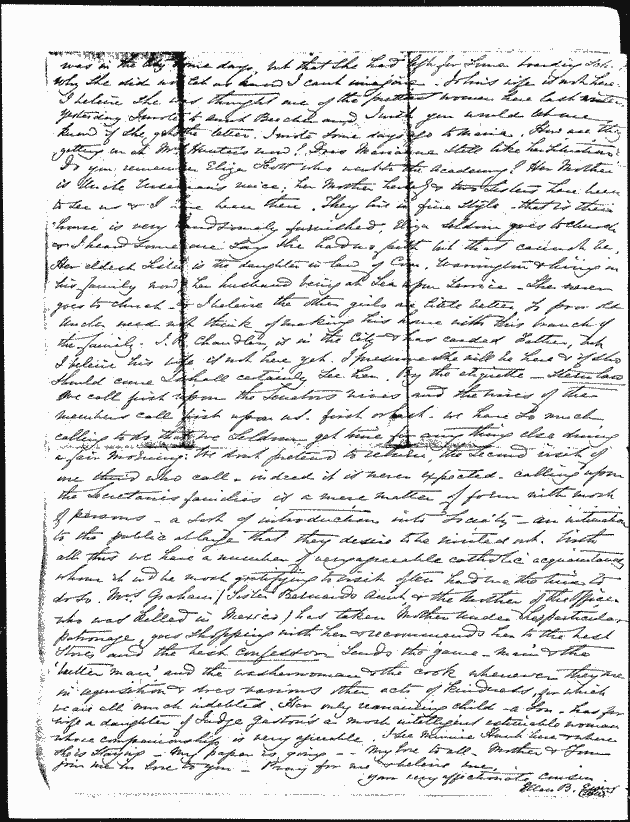 was in the City some days, but that she had left for some boarding Sch.
why she did not let us know I cant imagine. John's wife is not here.
I beleive she was thought one of the prettiest women here last winter.
Yesterday I wrote to Aunt Beecher and I wish you would let me
know if she gets the letter. I wrote some days ago to Maria. How are they
getting on at Mrs Hunter's now? Does Marianne still like her situation?
Do you remember Eliza Scott who went to the Academy? Her Mother
is Uncle niece; her Mother herself & two sisters have been
to see us & I have been there. They live in fine style - that is their
house is very handsomely furnished. Eliza seldom goes to church
& I heard some one say she had no faith but that cannot be.
Her eldest sister is the daughter in law of Com. Warrington & living in
his family now her husband being at Sea upon Service. She never
goes to church & I beleive the other girls are little better. So poor old
Uncle need not think of making his home with this branch of
the family. J. R. Chandler is in the City & has carded Father, but
I beleive his wife is not here yet. I presume she will be here & if she
should come I shall certainly see her. By the etiquette - Stern law
We call first upon the Senators wives and the wives of the
members call first upon us. first or last. we have so much
calling to do that we seldom get time for any thing else during
a fair morning. We dont pretend to return the second visit of
one third who call - indeed it is never expected. calling upon
the Secretaries families is a mere matter of form with most
of persons - a sort of introduction into Society - an intimation
to the public at large that they desire to be invited out. With
all this we have a number of very agreeable catholic acquaintances
whom it wd be most gratifying to visit often had we the time to
do so. Mrs Graham (Sister Bernards Aunt, & the mother of the officer
who was killed in Mexico) has taken Mother under her particular
patronage, goes shopping with her & recommends her to the best
stores and the best confessor. Sends the game-man & the
'butter man' and the washerwoman & the cook whenever they are
in requisition & does various other acts of kindness, for which
we are all much indebted. Her only remaining child - a Son - has for
wife a daughter of Judge Gaston's a most intelligent estimable woman
whose companionship is very agreeable. I see Hunt here & where
He is staying - My paper is going - - My love to all - Mother &
join me in love to you - Pray for me & beleive me,
your very affectionate cousin
Ellen B. Ewing